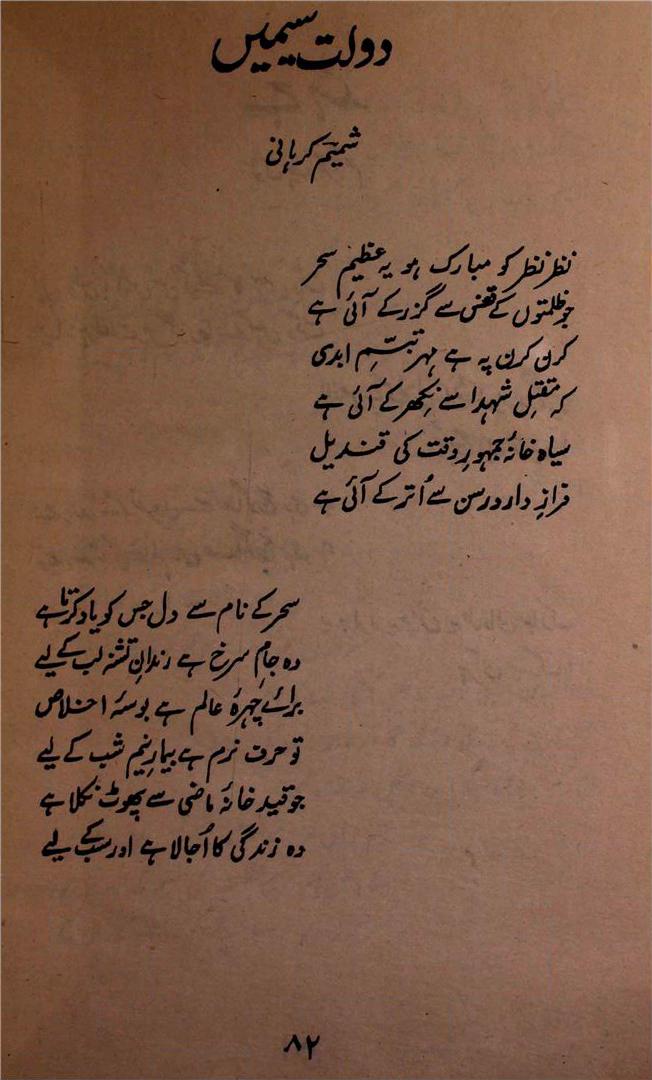 دولت سیمیں
شمیم کرہانی
نظر نظر کو مبارک ہو یہ عظیم سحر
جو ظلمتوں کے قفس سے گزر کے آئی ہے
کرن کرن پہ ہے مہر تبسّمِ ابدی
کہ مقتلِ شہدا سے نکھر کے آئی ہے
سیاہ خانۂ جمہورِ وقت کی قندیل
فرازِ دار و رسن سے اُتر کے آئی ہے
سحر کے نام سے دل جس کو یاد کرتا ہے
وہ جامِ سرخ ہے رندانِ تشنہ لب کے لیے
برائے چہرۂ عالم ہے بوسۂ اخلاص
تو حرف نرم ہے بیمارِ نیم شب کے لیے
جو قید خانۂ ماضی سے پھوٹ نکلا ہے
وہ زندگی کا اُجالا ہے اور سب کے لیے
۸۲